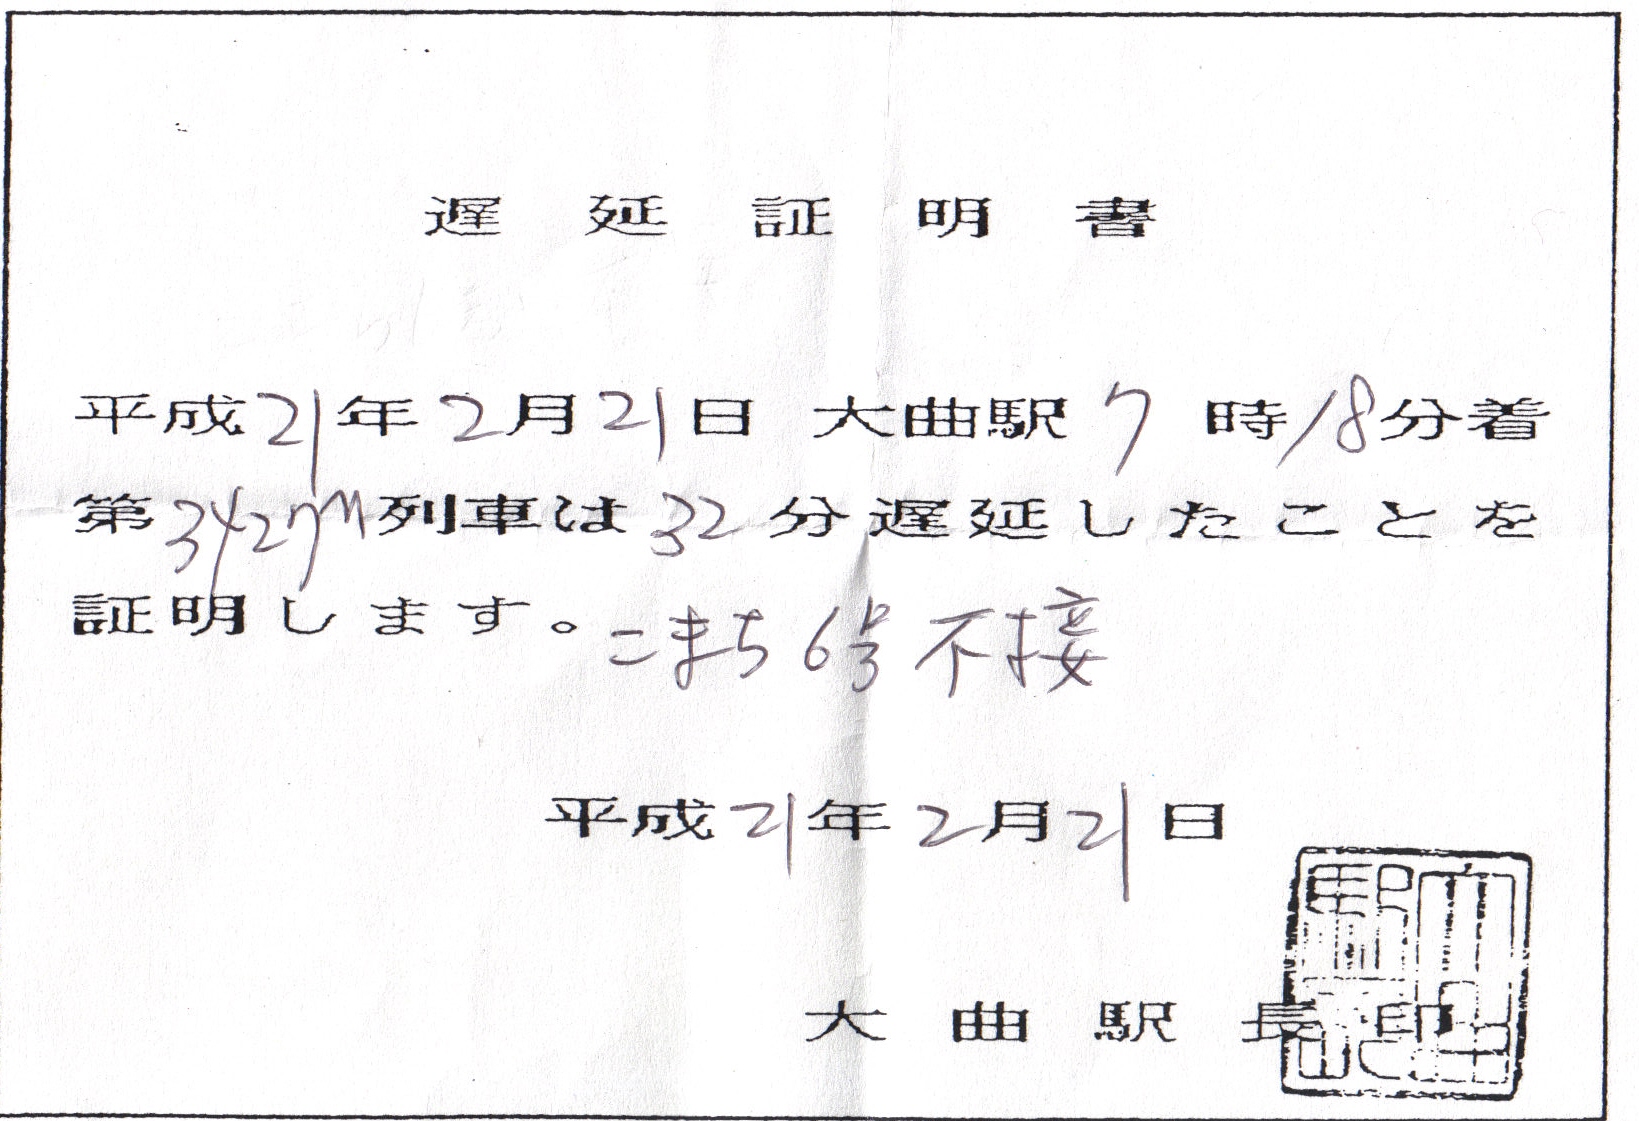 遅延証明書
平成21年2月21日 大曲駅7時18分着
第3427M列車は32分遅延したことを
証明します。こまち6号不接
平成21年2月21日
大曲駅長 印